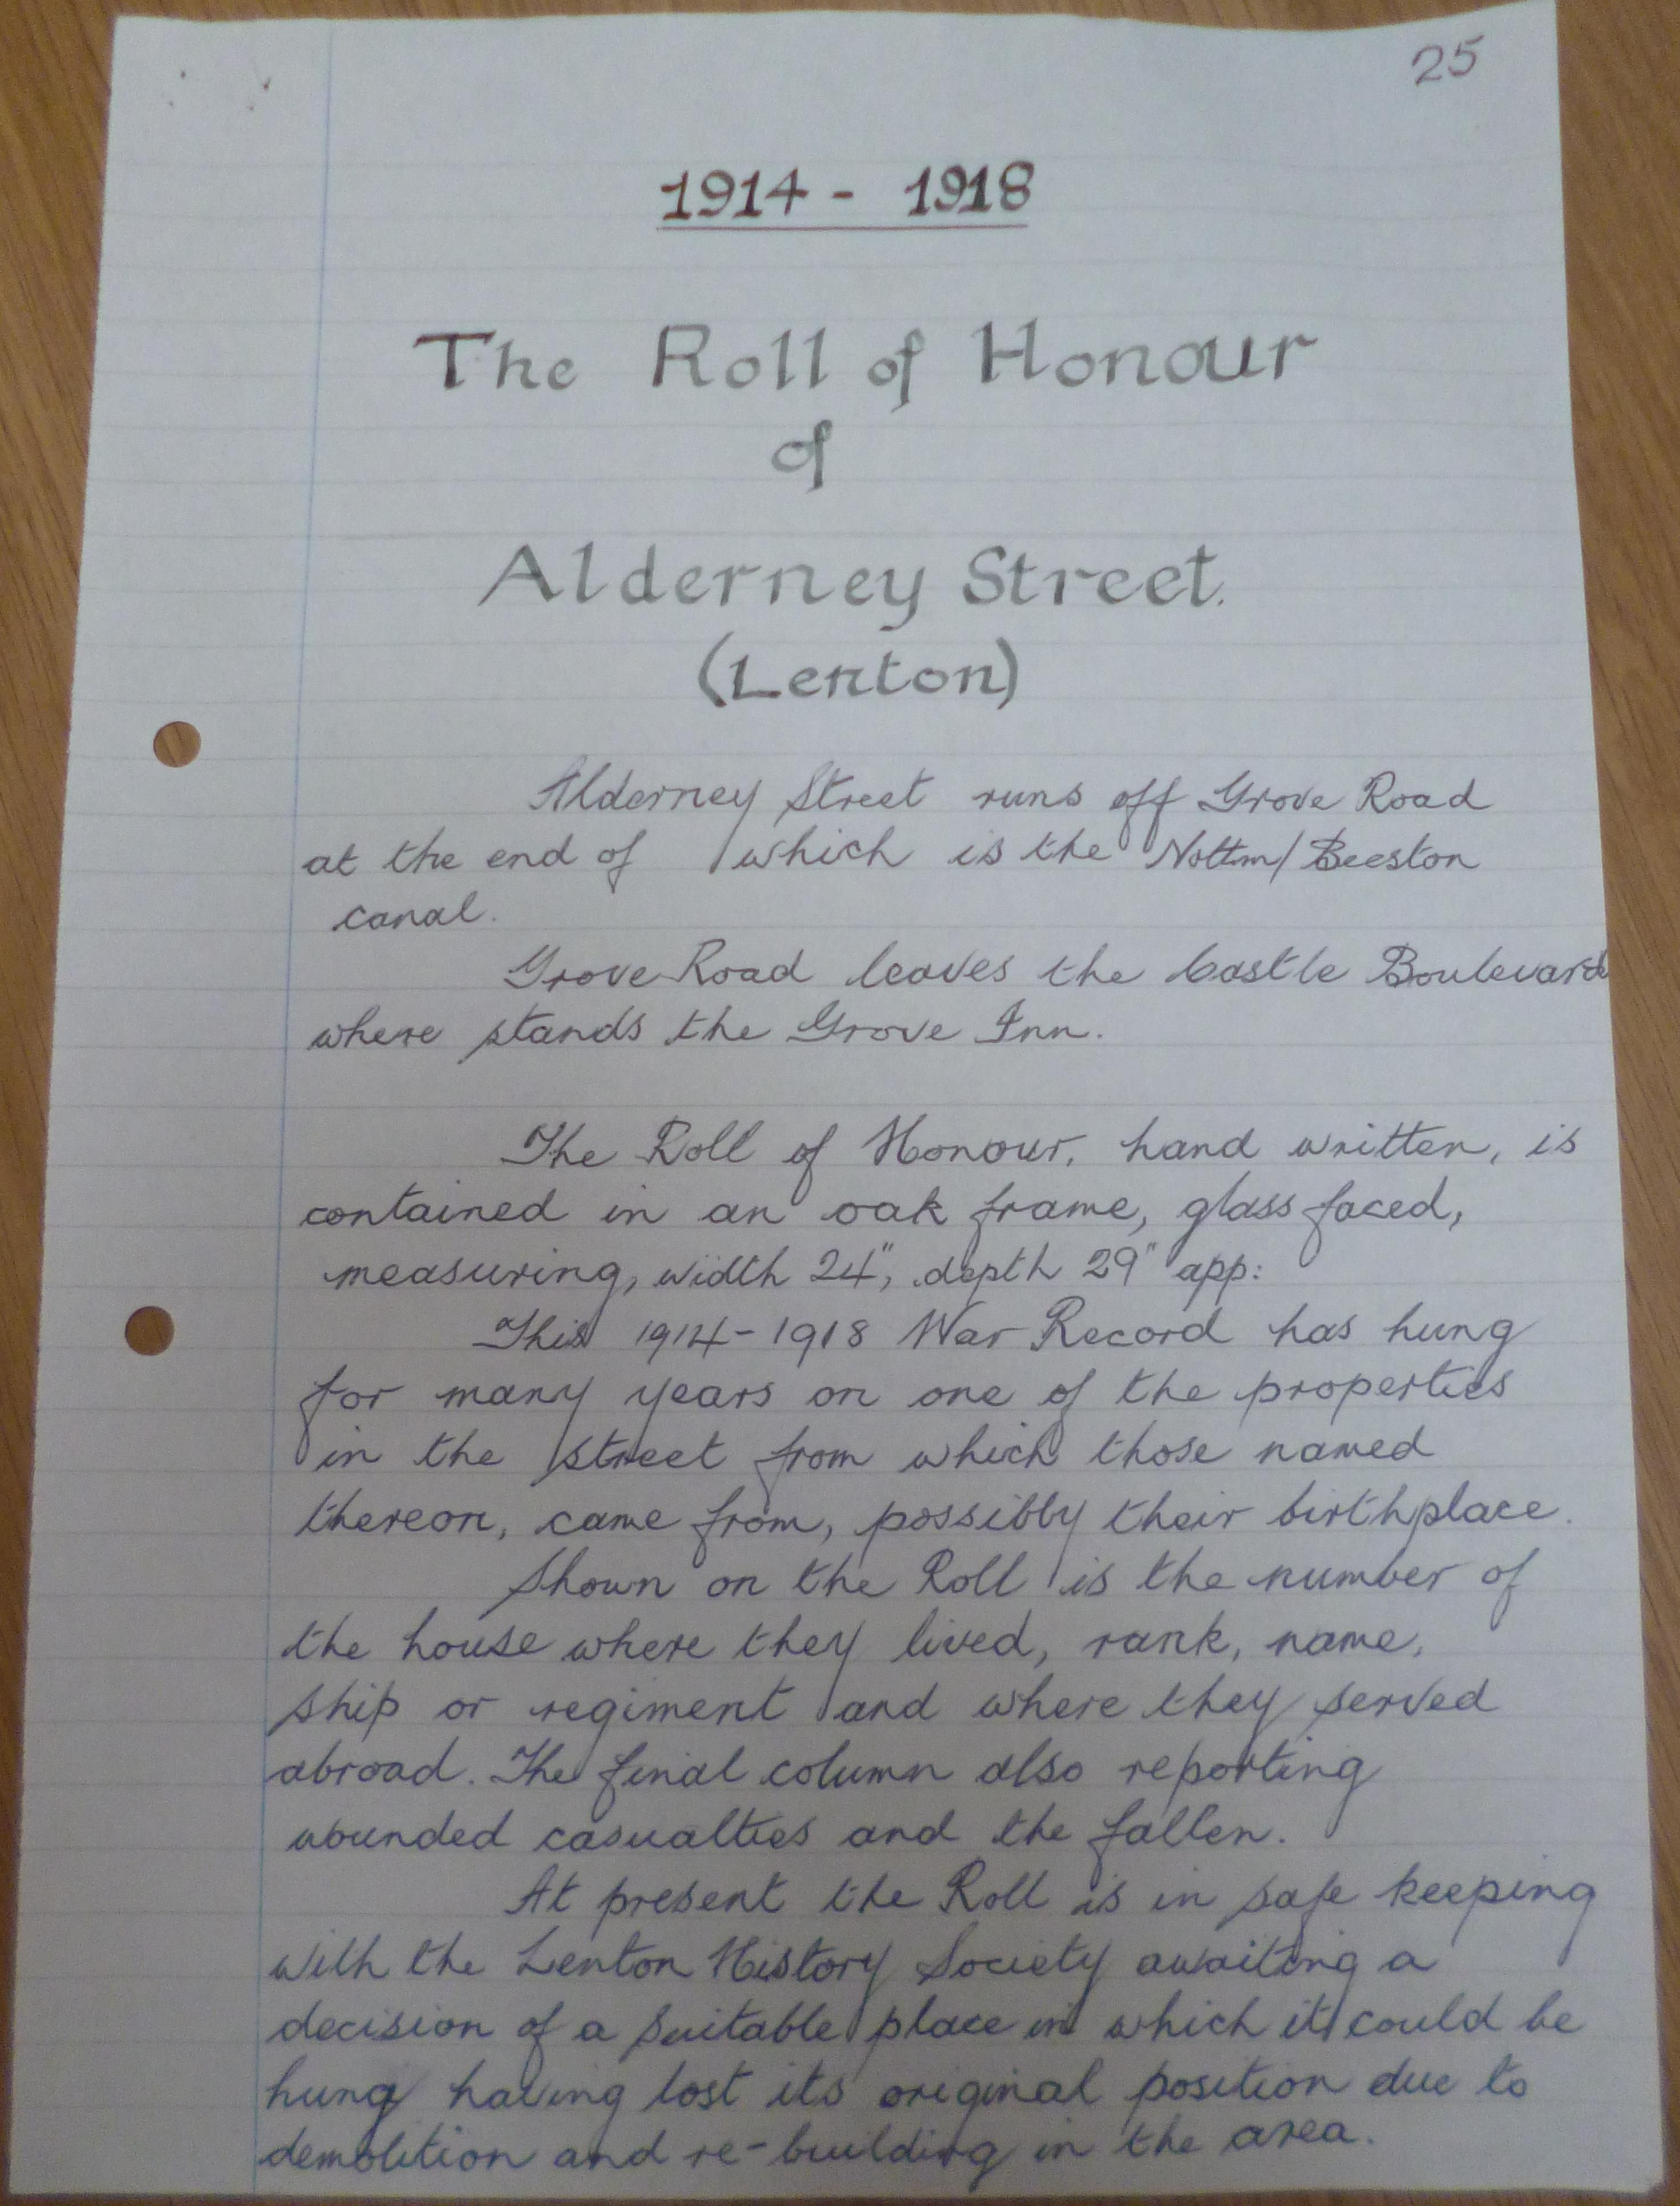 25
1914 - 1918
The Roll of Honour
of
Alderney Street.
(Lenton)
Alderney Street runs off Grove Road
at the end of which is the Nottm/Beeston
canal.
Grove Road leaves the Castle Boulevard
where stands the Grove Inn.
The Roll of Honour, hand written, is
contained in an oak frame, glass faced,
measuring, width 24", depth 29" app:
This 1914-1918 War Record has hung
for many years on one of the properties
in the street from which those named
thereon, came from, possibly their birthplace.
Shown on the Roll is the number of
the house where they lived, rank, name,
ship or regiment and where they served
abroad. The final column also reporting
wounded casualties and the fallen.
At present the Roll is in safe keeping
with the Lenton History Society awaiting a
decision of a suitable place in which it could be
hung having lost its original position due to
demolition and re-building in the area.